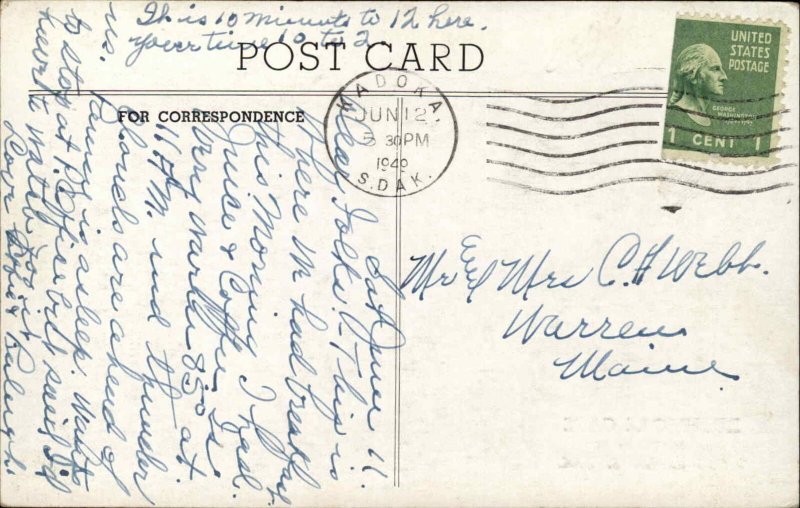 This is 10 minuets to 12 here.
your time 10 to 2.
POST CARD
FOR CORRESPONDENCE
UNITED
STATES
POSTAGE
GEORGE
WASHINGTON
1 CENT 1
KADOKA,
JUN 12
5 30 PM
1949
S. DAK.
Mr and Mrs C. H Webb.
Warren
Maine
Sat June 11.
Dear Folks:- This is
where We had breakfast
this Morning I had
Juice & Coffee. Is
very warm 85° at
11 A M. and thunder
clouds are ahead of
us. Fanny is asleep. Wants
to stop at P. Office but said I'd
have to watch for it
Love &